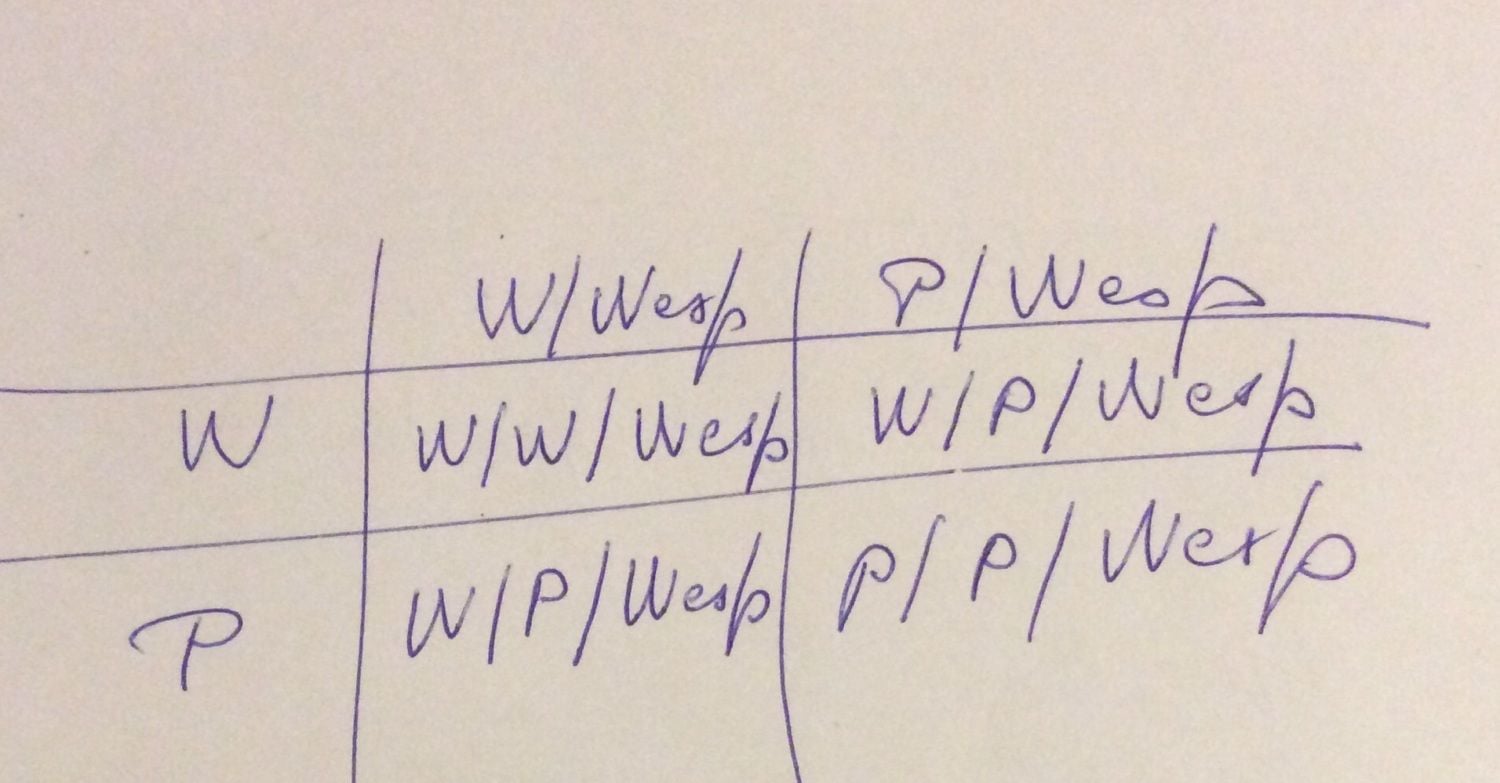 W/Wesp P/Wesp
W W/W/Wesp W/P/Wesp
P W/P/Wesp P/P/Wesp